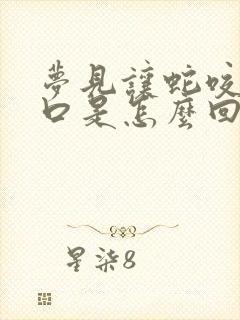 夢見讓蛇咬
口是怎麼回
星柒8